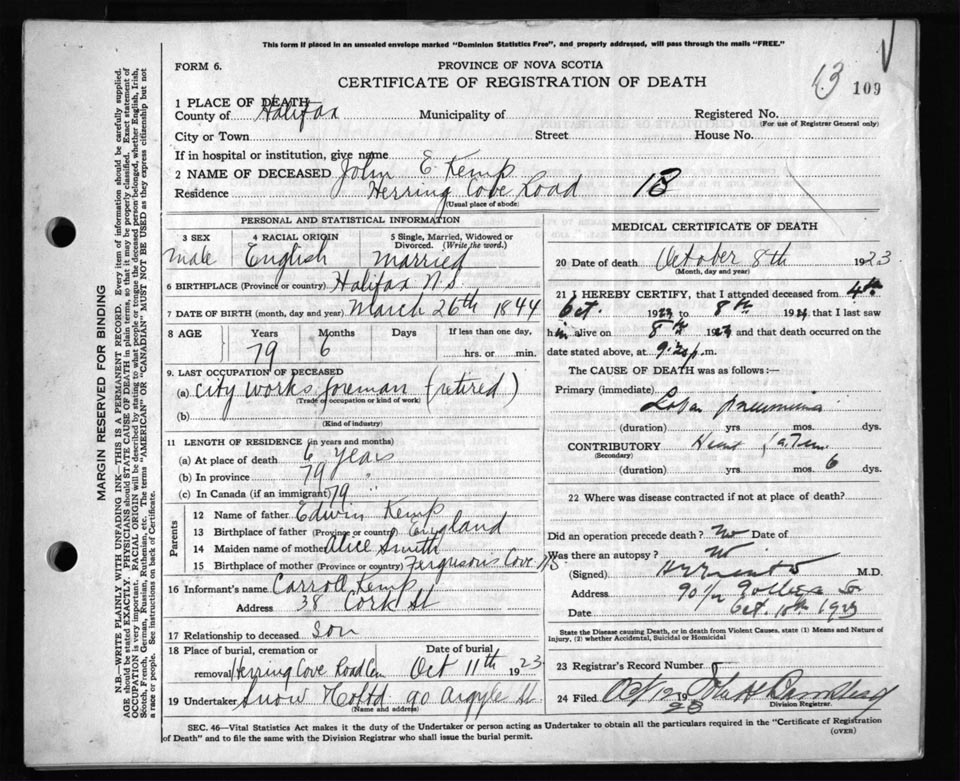 This form if placed in an unsealed envelope marked "Dominion Statistics Free", and properly addressed, will pass through the mails "FREE."
FORM 6.
PROVINCE OF NOVA SCOTIA
CERTIFICATE OF REGISTRATION OF DEATH
13 109
1 PLACE OF DEATH
County of Halifax Municipality of Registered No.
(For use of Registrar General only)
City or Town Street House No.
If in hospital or institution, give name
2 NAME OF DECEASED John E Kemp
Residence Herring Cove Road 18
(Usual place of abode)
PERSONAL AND STATISTICAL INFORMATION
3 SEX 4 RACIAL ORIGIN 5 Single, Married, Widowed or Divorced. (Write the word.)
Male English Married
6 BIRTHPLACE (Province or country) Halifax N.S.
7 DATE OF BIRTH (month, day and year) March 26th 1844
8 AGE Years Months Days If less than one day,
79 6 hrs. or min.
9. LAST OCCUPATION OF DECEASED
(a) City Works foreman (retired)
(Trade or occupation or kind of work)
(b)
(Kind of industry)
11 LENGTH OF RESIDENCE (in years and months)
(a) At place of death 6 years
(b) In province 79 "
(c) In Canada (if an immigrant) 79 "
Parents
12 Name of father Edwin Kemp
13 Birthplace of father (Province or country) England
14 Maiden name of mother Alice Smith
15 Birthplace of mother (Province or country) Fergusons Cove N.S.
16 Informant's name Carroll Kemp
Address 38 Cork St
17 Relationship to deceased Son
18 Place of burial, cremation or removal Herring Cove Road Cem
Date of burial Oct 11th 1923
19 Undertaker Snow & Co Ltd 90 Argyle St
(Name and address)
MEDICAL CERTIFICATE OF DEATH
20 Date of death October 8th 1923
(Month, day and year)
21 I HEREBY CERTIFY, that I attended deceased from 4th
Oct. 1923 to 8th 1923 that I last saw
him alive on 8th 1923 and that death occurred on the
date stated above, at 9.20 p.m.
The CAUSE OF DEATH was as follows:—
Primary (immediate)
Lobar pneumonia
(duration) yrs mos. dys.
CONTRIBUTORY Heart
(Secondary)
(duration) yrs mos. 6 dys.
22 Where was disease contracted if not at place of death?
Did an operation precede death? No Date of
Was there an autopsy? No
(Signed) M.D.
Address 90 1/2
Date Oct. 10th 1923
State the Disease causing Death, or in death from Violent Causes, state (1) Means and Nature of Injury, (2) whether Accidental, Suicidal or Homicidal
23 Registrar's Record Number
24 Filed Oct 12 1923
Division Registrar.
SEC. 46—Vital Statistics Act makes it the duty of the Undertaker or person acting as Undertaker to obtain all the particulars required in the "Certificate of Registration
of Death" and to file the same with the Division Registrar who shall issue the burial permit.
(OVER)
MARGIN RESERVED FOR BINDING
N.B.—WRITE PLAINLY WITH UNFADING INK—THIS IS A PERMANENT RECORD. Every item of information should be carefully supplied.
AGE should be stated EXACTLY. PHYSICIANS should STATE CAUSE OF DEATH in plain terms, so that it may be properly classified. Exact statement of
OCCUPATION is very important. RACIAL ORIGIN will be described by stating to what people or tongue the deceased person belonged, whether English, Irish,
Scotch, French, German, Russian, Ruthenian, etc. The terms "AMERICAN" or "CANADIAN" MUST NOT BE USED as they express citizenship but not
a race or people. See instructions on back of Certificate.